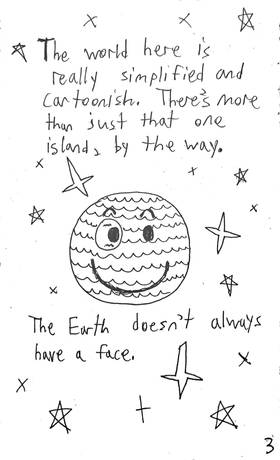 The world here is
really simplified and
cartoonish. There's more
than just that one
island, by the way.
The Earth doesn't always
have a face.
3